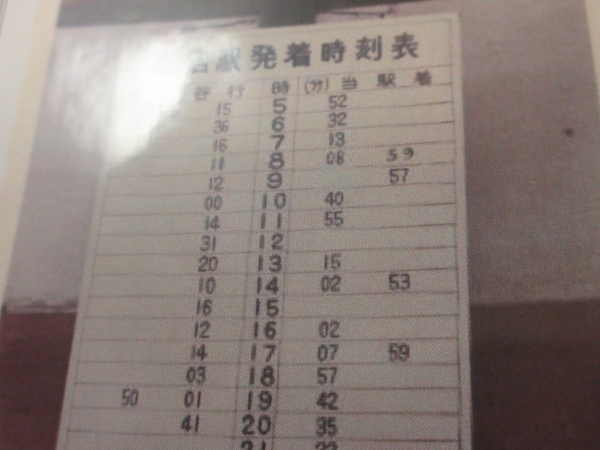 駅発着時刻表
谷行 時 (分) 当駅着
15 5 52
36 6 32
16 7 13
11 8 08 59
12 9 57
00 10 40
14 11 55
31 12
20 13 15
10 14 02 53
16 15
12 16 02
14 17 07 59
03 18 57
50 01 19 42
41 20 35